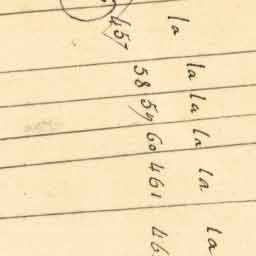 457 la
58 la
59 la
60 la
461 la
46 la